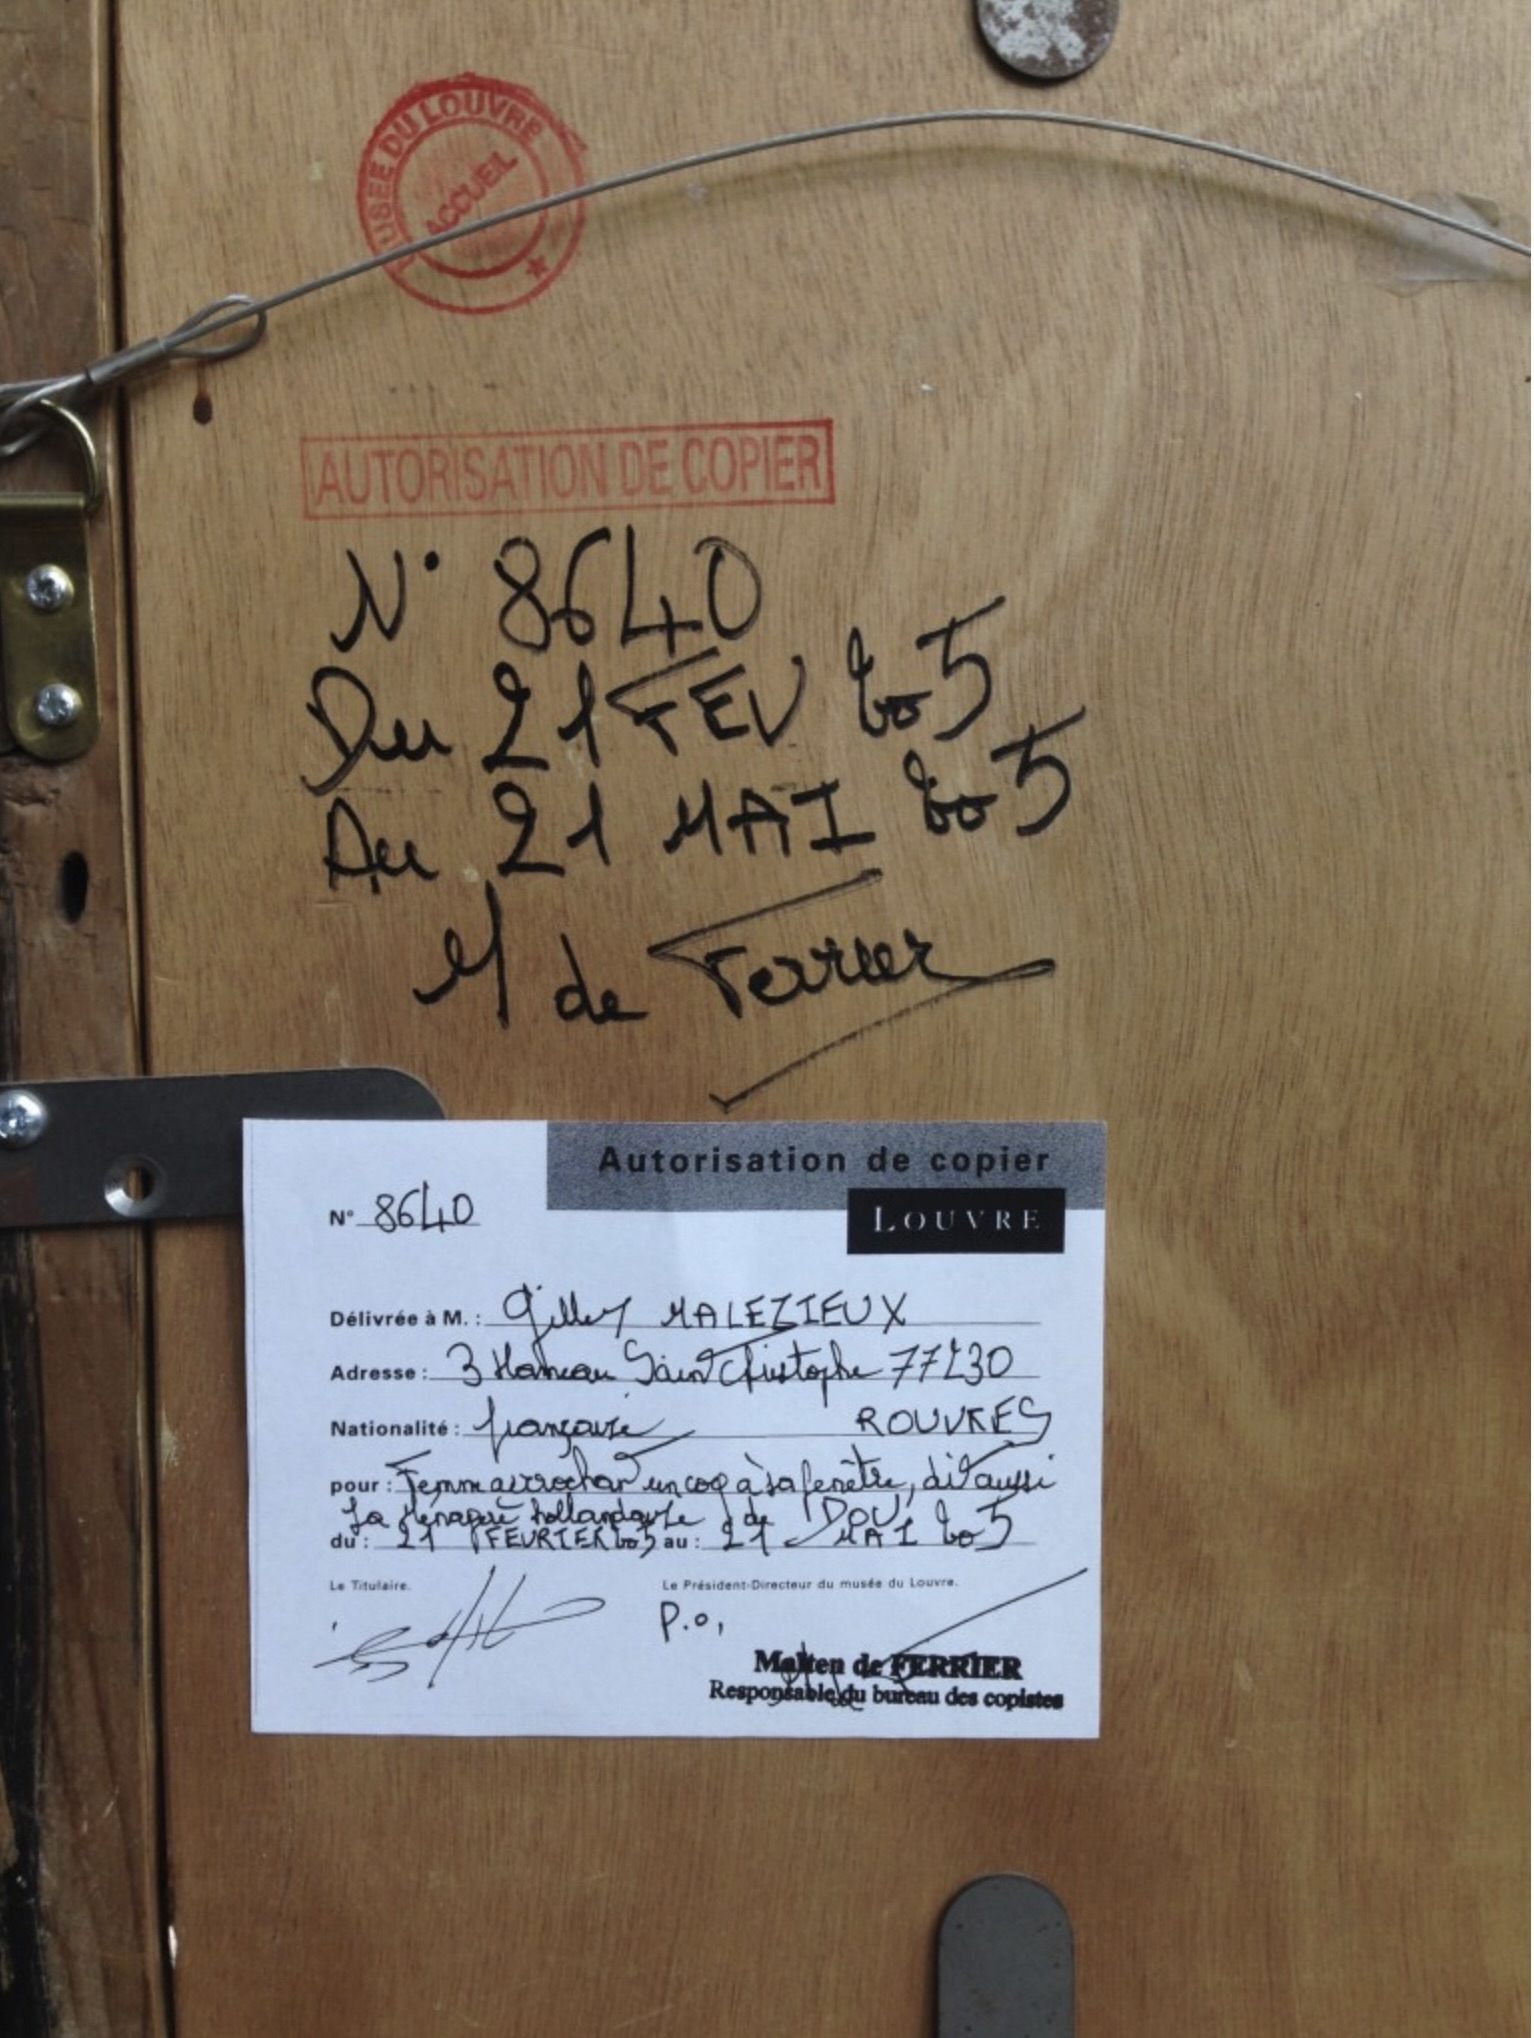 MUSEE DU LOUVRE
ACCUEIL
AUTORISATION DE COPIER
N° 8640
Du 21 FEV 2005
Au 21 MAI 2005
M de Ferrier
Autorisation de copier
LOUVRE
N° 8640
Délivrée à M. : Gilles MALEZIEUX
Adresse : 3 Hameau Saint Christophe 77230
Nationalité : française ROUVRES
pour : Femme accrochant un coq à sa fenêtre, dit aussi
La Ménagère hollandaise de DOU,
du : 21 FEVRIER 2005 au : 21 MAI 2005
Le Titulaire.
Le Président-Directeur du musée du Louvre.
P.o,
de FERRIER
Responsable du bureau des copistes